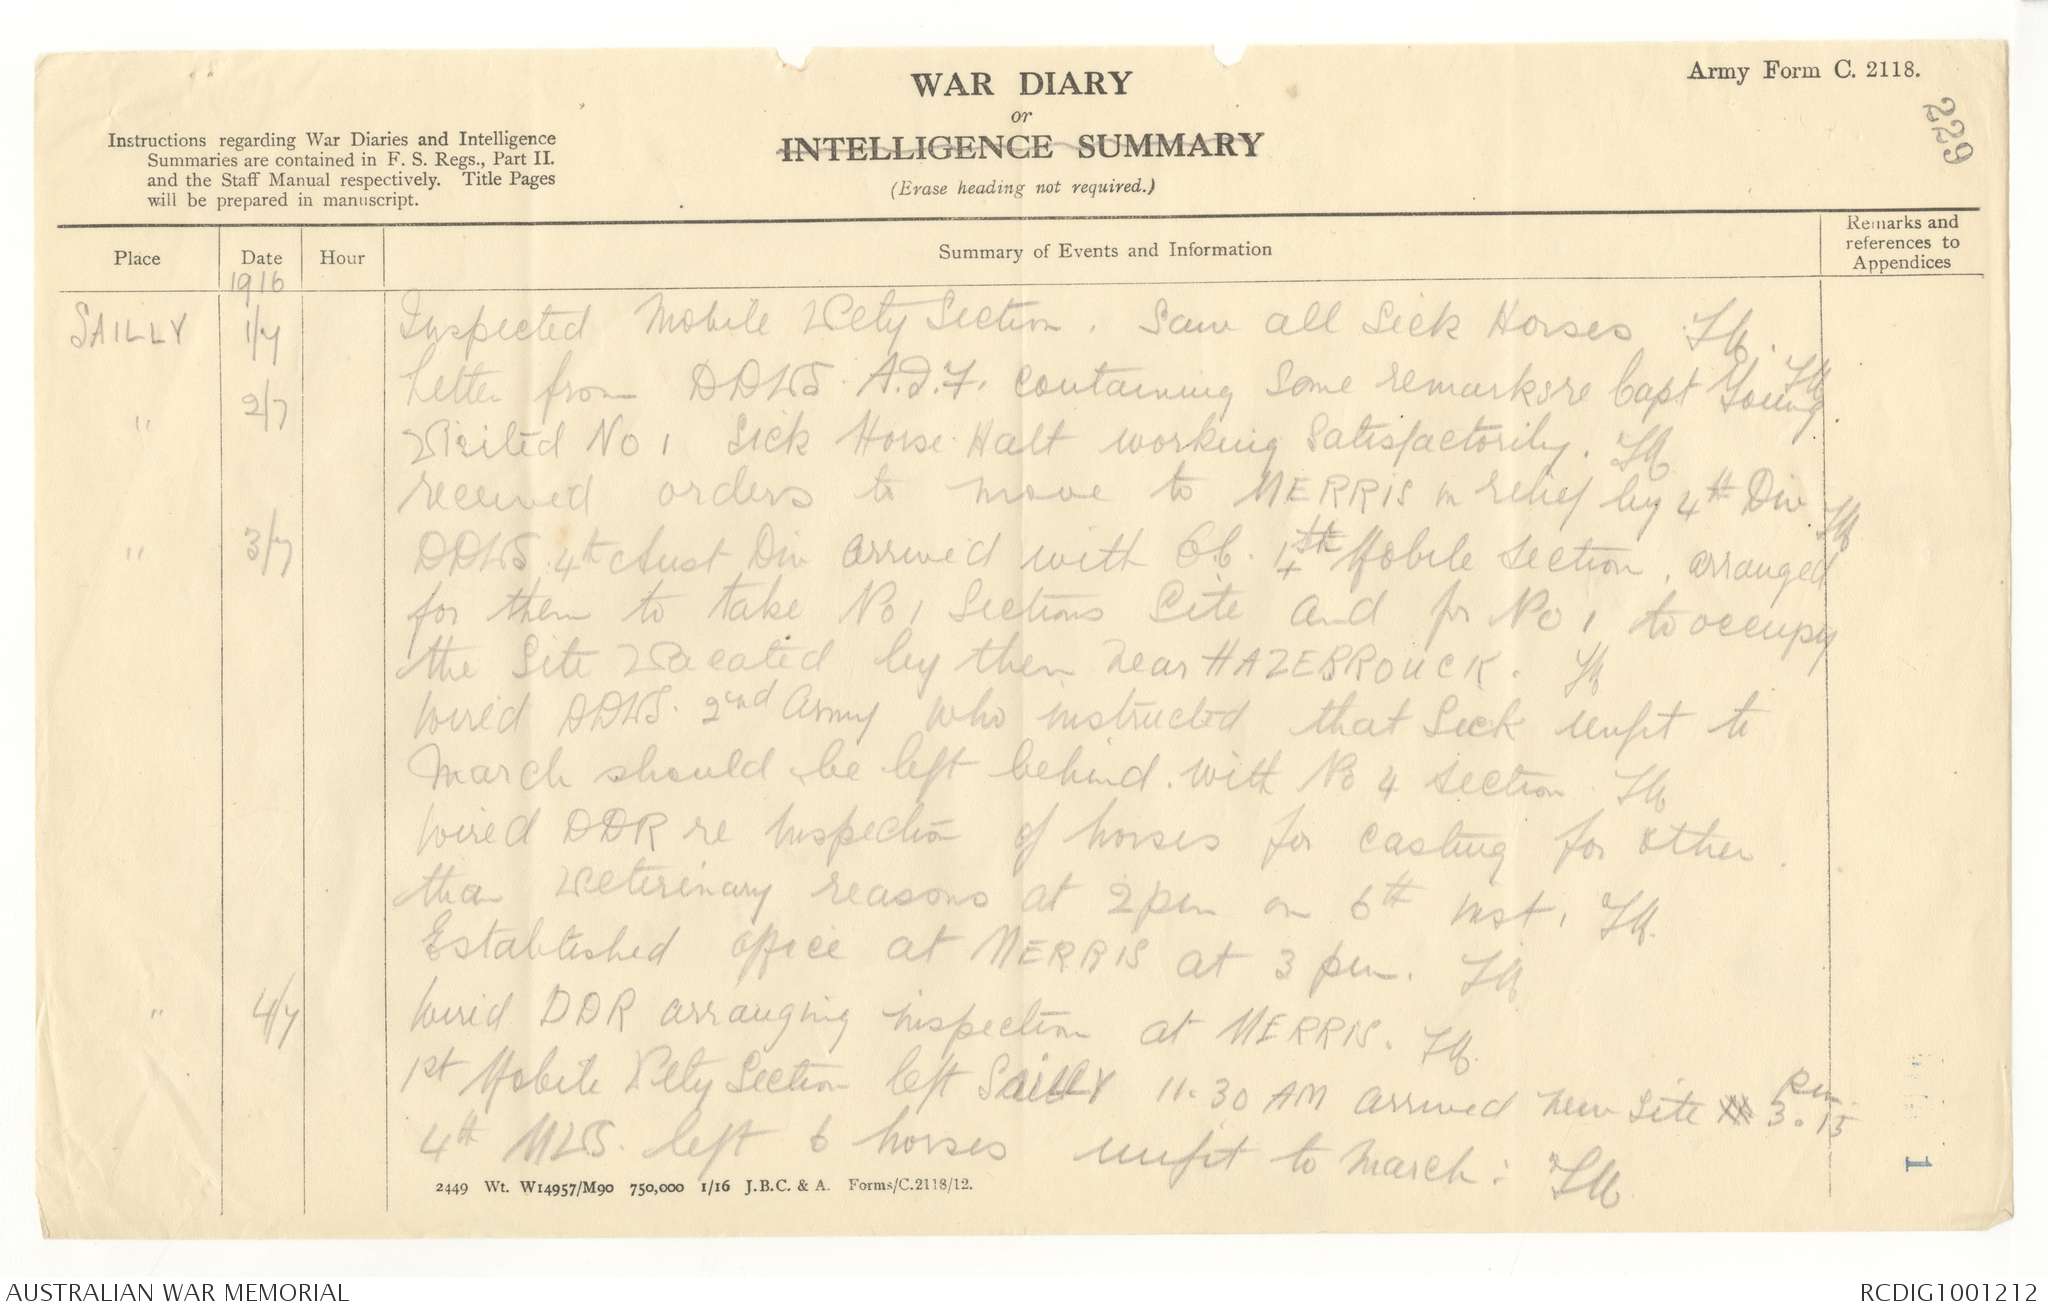 Army Form C. 2118.
229
WAR DIARY
or
INTELLIGENCE SUMMARY
(Erase heading not required.)
Instructions regarding War Diaries and Intelligence
Summaries are contained in F. S. Regs., Part II.
and the Staff Manual respectively. Title Pages
will be prepared in manuscript.
Place Date Hour Summary of Events and Information Remarks and references to Appendices
1916
SAILLY 1/7 Inspected Mobile Vety Section. Saw all Sick Horses
" 2/7 Letter from DDVS A.I.F. containing some remarks re Capt Young.
Visited No 1 Sick Horse Halt working satisfactorily.
received orders to move to MERRIS in relief by 4th Div
" 3/7 DDVS 4th Aust Div arrived with Mobile Section. arranged
for them to take No 1 Sections Site and for No 1 to occupy
the Site Vacated by them near HAZEBROUCK.
Wired DDVS. 2nd Army who instructed that Sick unfit to
March should be left behind. with No 4 section
Wired DDR re inspection of horses for casting for other
than Veterinary reasons at 2 pm on 6th inst.
Established office at MERRIS at 3 pm.
" 4/7 Wired DDR arranging inspection at MERRIS.
1st Mobile Vety Section left SAILLY 11.30 AM arrived new site 3.15 Pm
4th MVS. left 6 horses unfit to March:
2449 Wt. W14957/M90 750,000 1/16 J.B.C. & A. Forms/C.2118/12.
1
AUSTRALIAN WAR MEMORIAL
RCDIG1001212